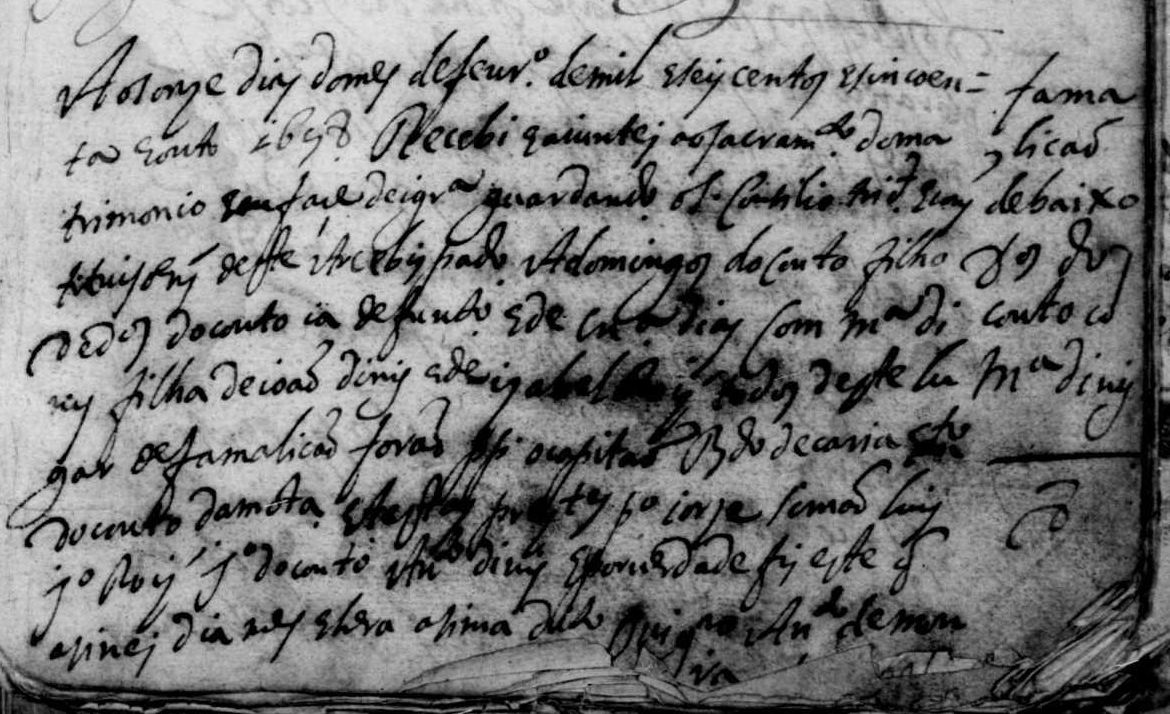 Aos onze dias do mes de feur.º de mil e seis centos e sincoen=
ta e outo 1658 Recebi e aiuntei ao sacram.to do ma
trimonio em face da igr.ª guardando o S. Consilio trid. e cons
tituisois deste Arcebispado A domingos do couto filho
de d.os do couto ia defunto e de m.ª dias Com M.ª di
nis filha de ioaõ dinis e de izabel todos deste lu
gar de famalicaõ foraõ o capitaõ B.do de caria
do couto da mota e test.as pres.tes p.º iorge simaõ luis
j.º Roĩs j.º do couto An.to dinis e por uerdade fis este q̃
asinei dia mes e hera asima dito An.to de mou
ra
fama
licaõ
debaixo
D.os do
couto cõ
M.ª dinis